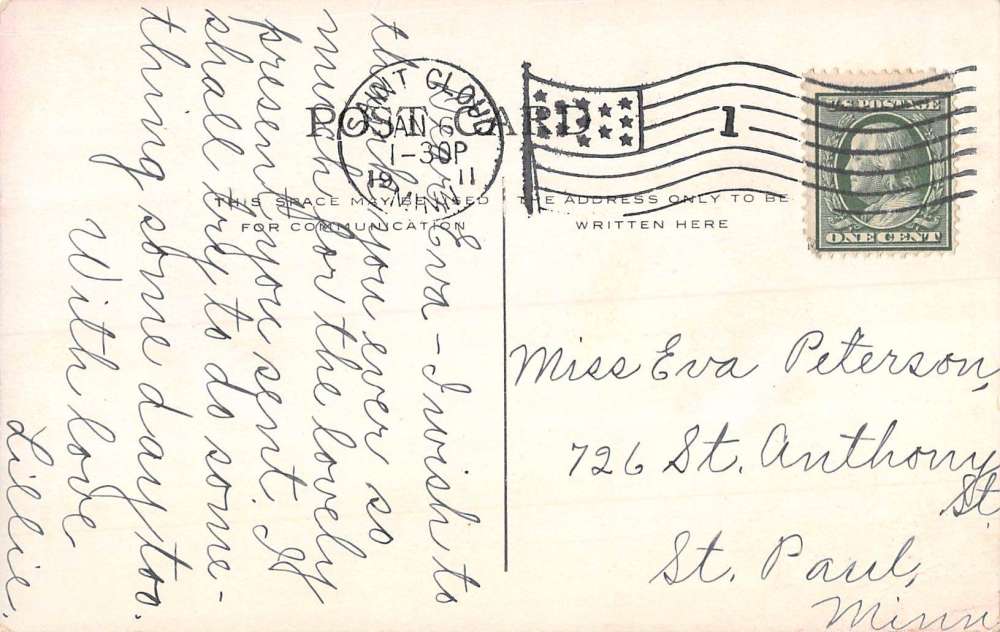 POST CARD
THIS SPACE MAY BE USED
FOR COMMUNICATION
THE ADDRESS ONLY TO BE
WRITTEN HERE
SAINT CLOUD
JAN 6
1-30P
19 11
MINN.
1
U.S. POSTAGE
ONE CENT
Dear Eva – I wish to
thank you ever so
much for the lovely
present you sent. I
shall try to do some-
thing some day too.
With love
Lillie.
Miss Eva Peterson,
726 St. Anthony
St.
St. Paul,
Minn